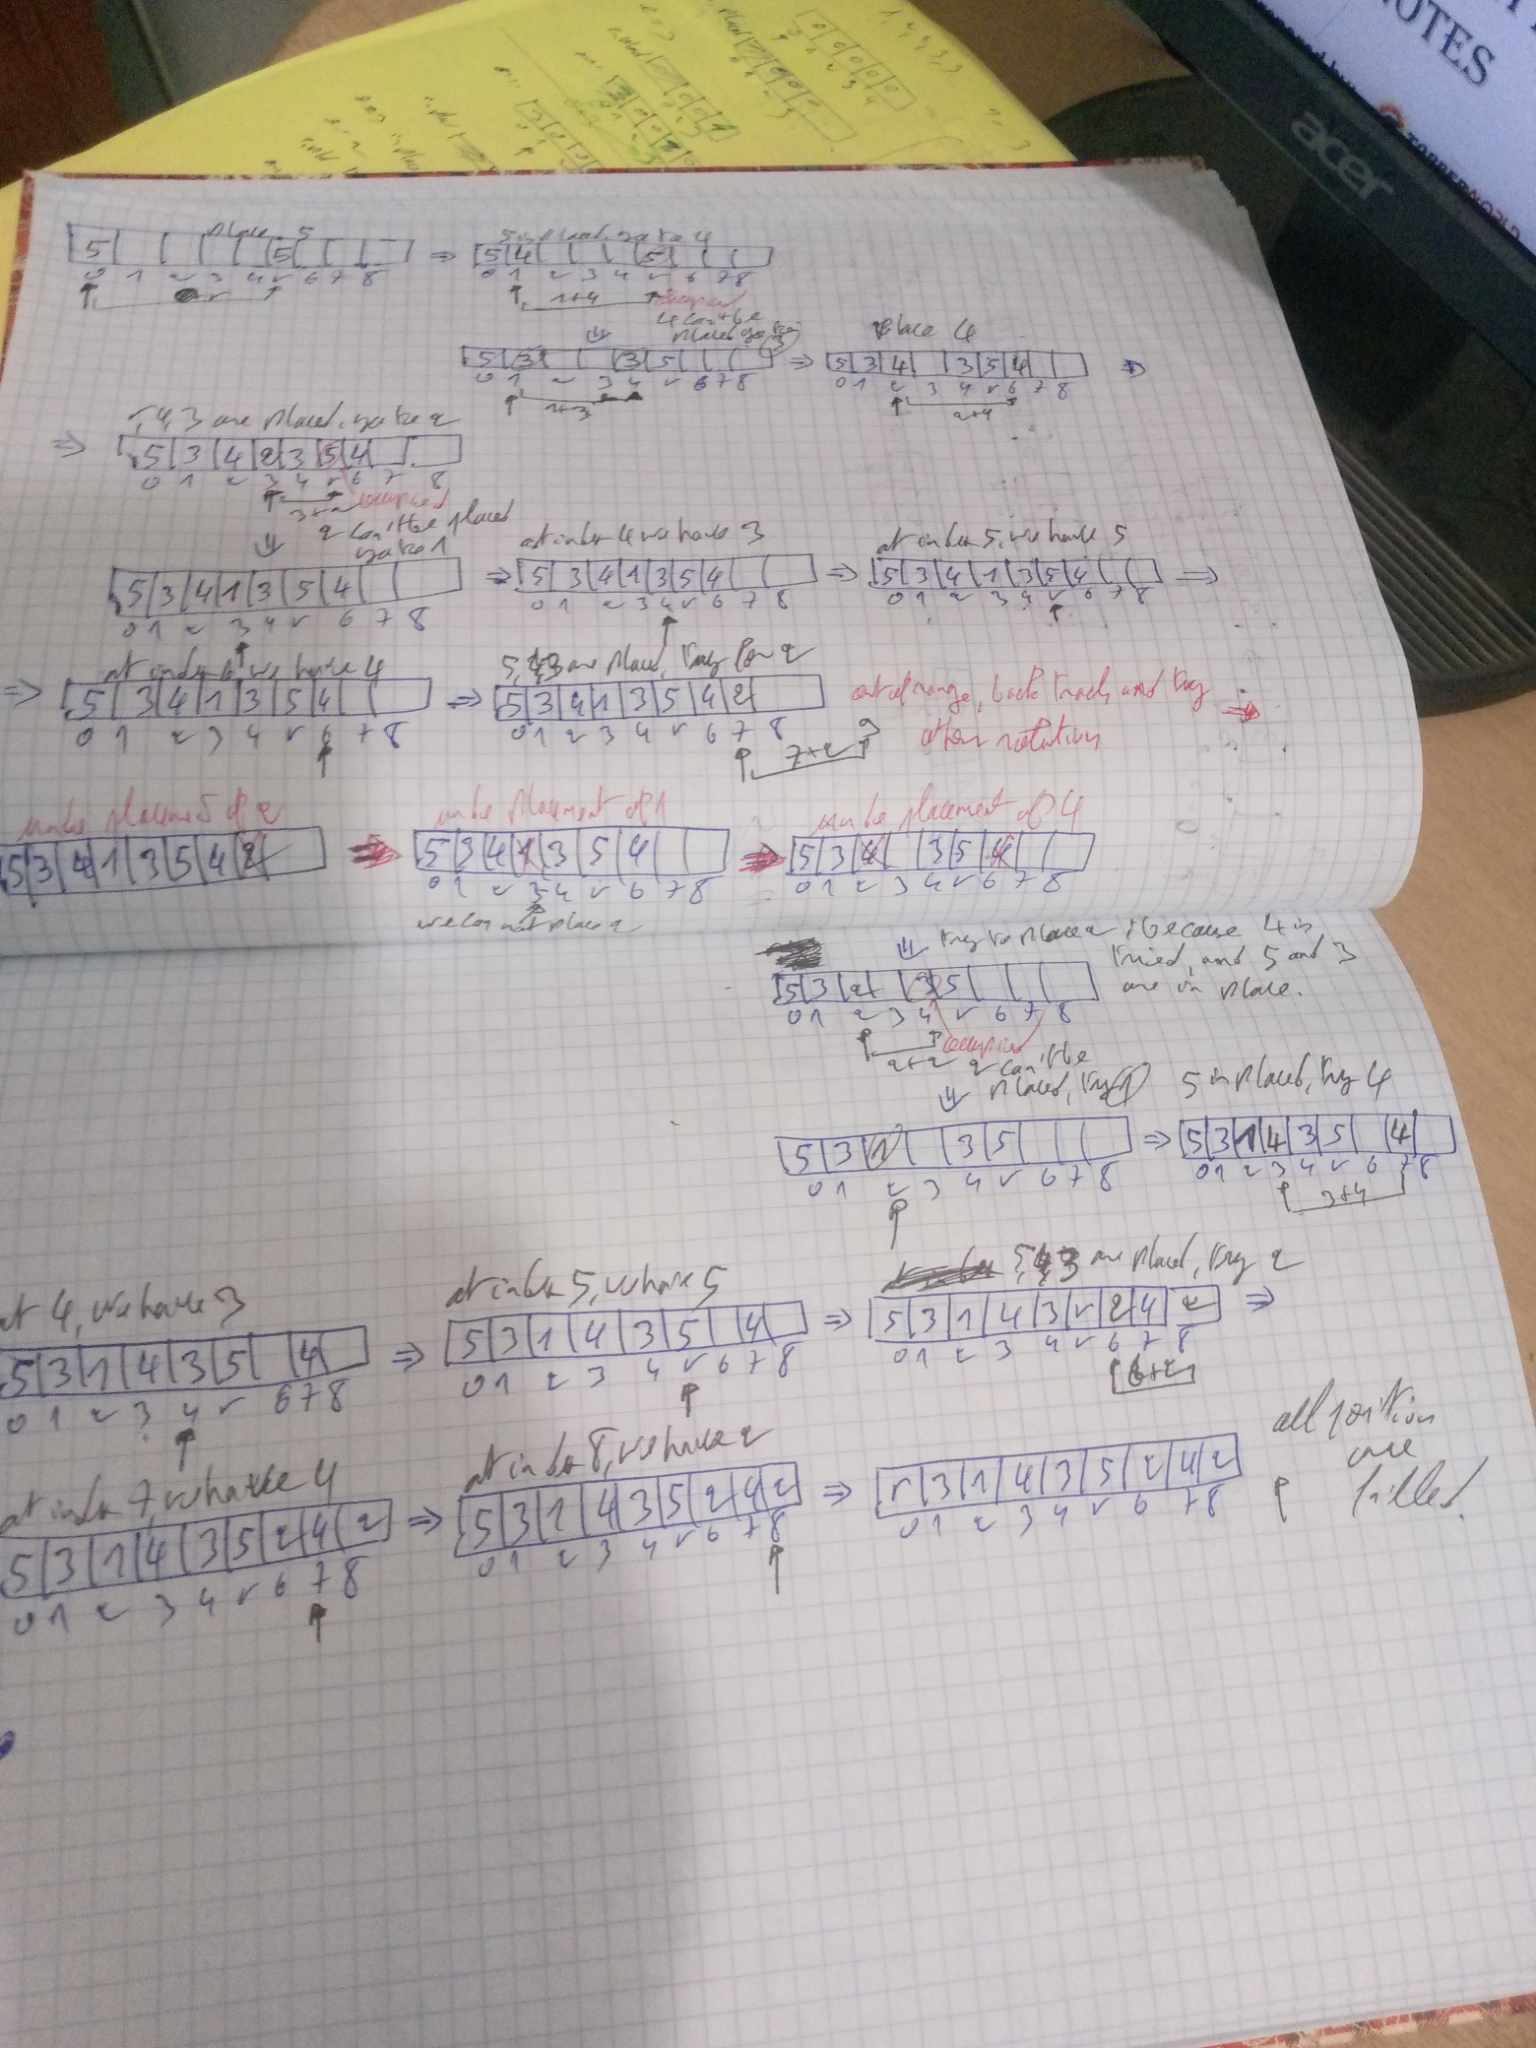 NOTES
acer
place 5
5 5
0 1 2 3 4 5 6 7 8
5 is placed, go to 4
5 4 5
0 1 2 3 4 5 6 7 8
1+4
occupied
4 can't be
placed go to 3
5 3 3 5
0 1 2 3 4 5 6 7 8
1+3
place 4
5 3 4 3 5 4
0 1 2 3 4 5 6 7 8
2+4
5,4,3 are placed, go to 2
5 3 4 2 3 5 4
0 1 2 3 4 5 6 7 8
3+2 occupied
2 can't be placed
go to 1
5 3 4 1 3 5 4
0 1 2 3 4 5 6 7 8
at index 4 we have 3
5 3 4 1 3 5 4
0 1 2 3 4 5 6 7 8
at index 5, we have 5
5 3 4 1 3 5 4
0 1 2 3 4 5 6 7 8
at index 6, we have 4
5 3 4 1 3 5 4
0 1 2 3 4 5 6 7 8
5,4,3 are placed, try for 2
5 3 4 1 3 5 4 2
0 1 2 3 4 5 6 7 8 9
7+2
out of range, back track, and try
other
placement of 2
5 3 4 1 3 5 4 2
placement of 1
5 3 4 1 3 5 4
0 1 2 3 4 5 6 7 8
we can not place 2
placement of 4
5 3 4 3 5 4
0 1 2 3 4 5 6 7 8
try to place 2, because 4 is
tried, and 5 and 3
are in place.
5 3 2 3 5
0 1 2 3 4 5 6 7 8
2+2 occupied
2 can't be
placed, try 1
5 3 1 3 5
0 1 2 3 4 5 6 7 8
5 is placed, try 4
5 3 1 4 3 5 4
0 1 2 3 4 5 6 7 8
3+4
at 4, we have 3
5 3 1 4 3 5 4
0 1 2 3 4 5 6 7 8
at index 5, we have 5
5 3 1 4 3 5 4
0 1 2 3 4 5 6 7 8
5,4,3 are placed, try 2
5 3 1 4 3 5 2 4 2
0 1 2 3 4 5 6 7 8
6+2
at index 7, we have 4
5 3 1 4 3 5 2 4 2
0 1 2 3 4 5 6 7 8
at index 8, we have 2
5 3 1 4 3 5 2 4 2
0 1 2 3 4 5 6 7 8
5 3 1 4 3 5 2 4 2
0 1 2 3 4 5 6 7 8
all position
are
filled.